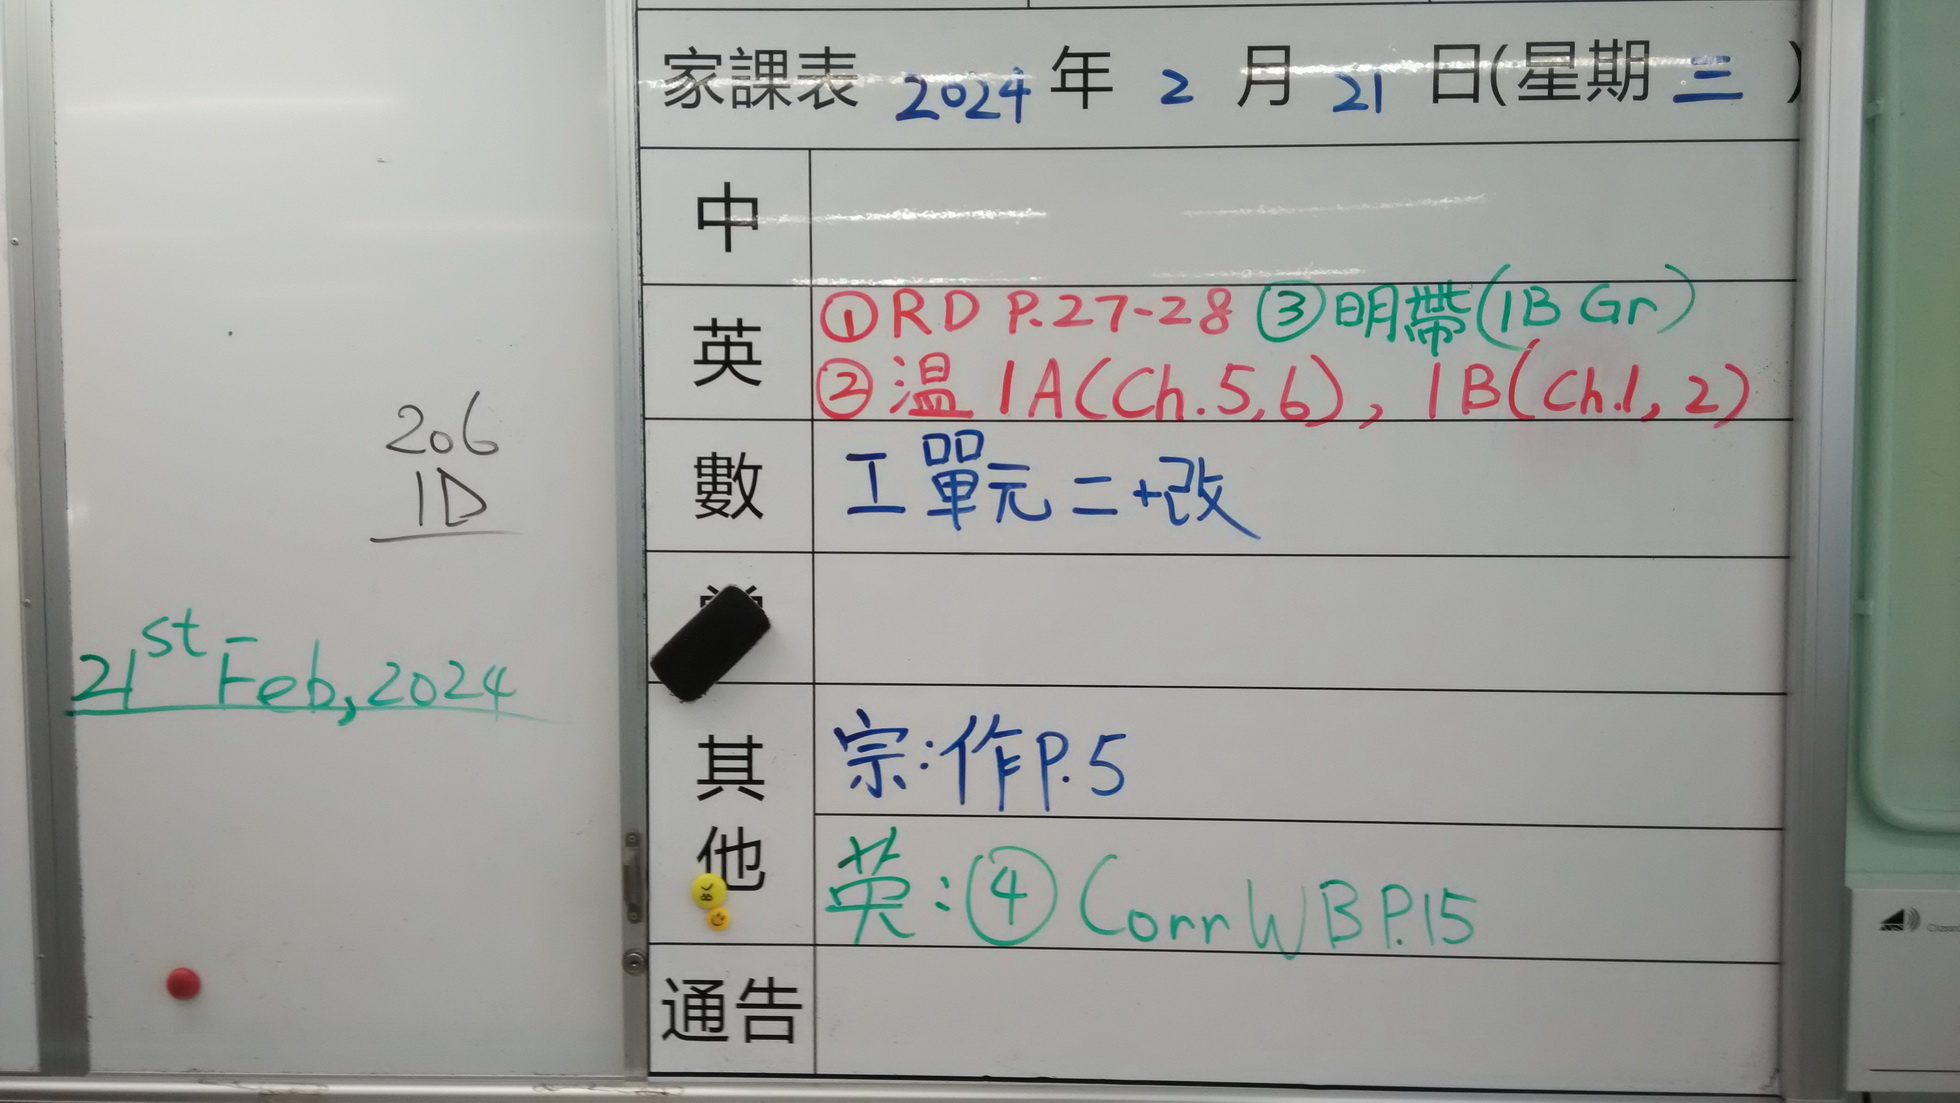 206
1D
21st Feb, 2024
家課表 2024 年 2 月 21 日(星期 三 )
中
英 ①RD P.27-28 ③明帶(1B Gr)
②温 1A(Ch.5,6), 1B(Ch.1, 2)
數 工單元二+改
其他 宗:作P.5
英:④ Corr WB P.15
通告